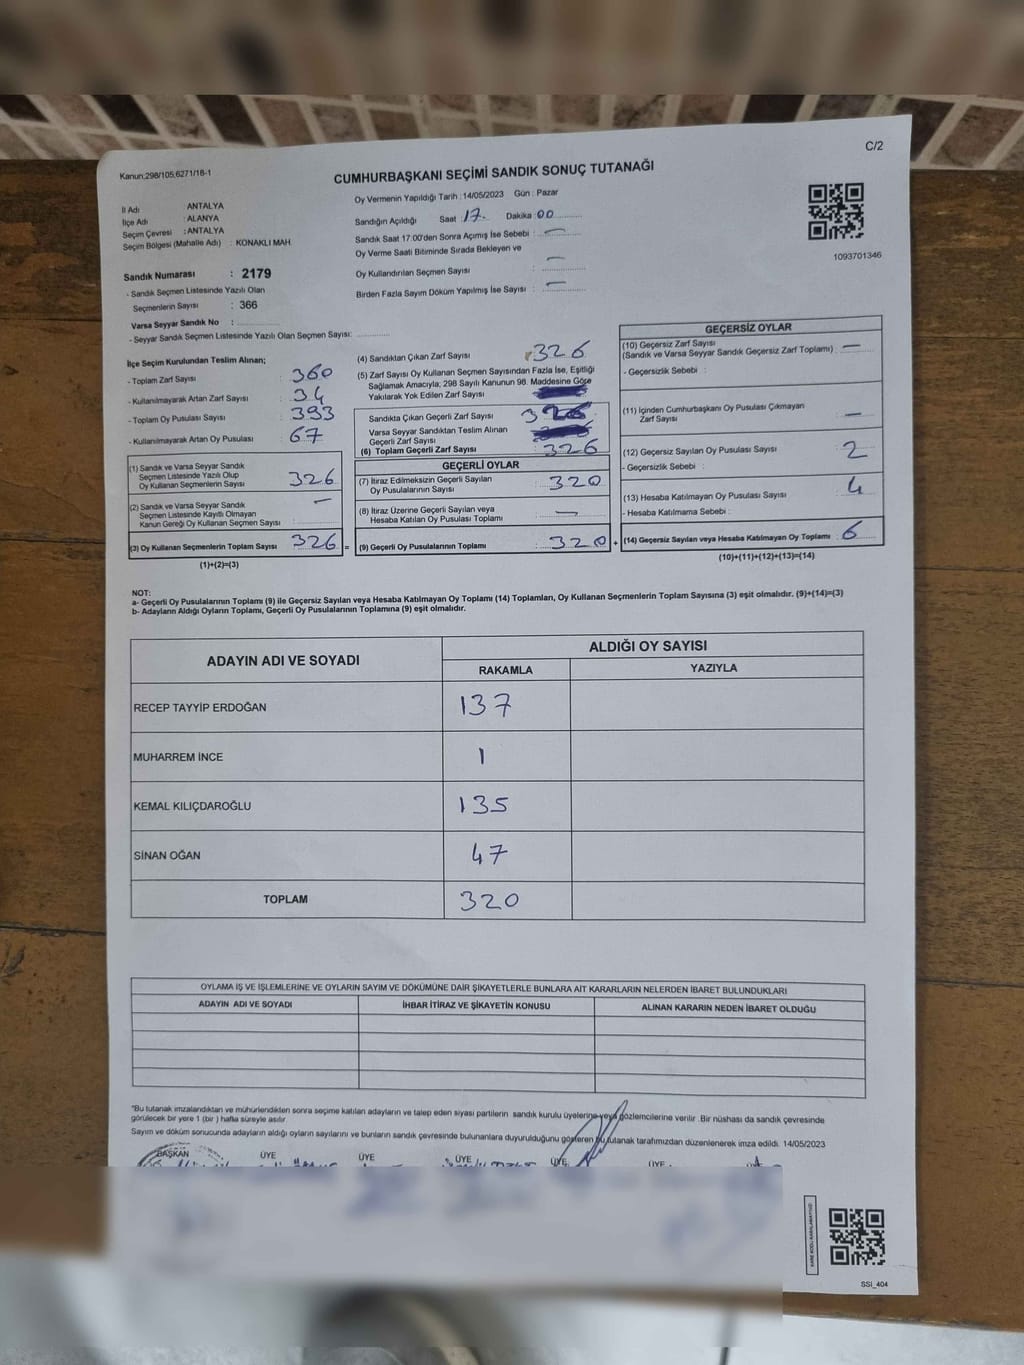 C/2
Kanun;298/105,6271/18-1
CUMHURBAŞKANI SEÇİMİ SANDIK SONUÇ TUTANAĞI
İl Adı : ANTALYA
İlçe Adı : ALANYA
Seçim Çevresi : ANTALYA
Seçim Bölgesi (Mahalle Adı) : KONAKLI MAH.
Sandık Numarası : 2179
- Sandık Seçmen Listesinde Yazılı Olan
Seçmenlerin Sayısı : 366
Varsa Seyyar Sandık No :
- Seyyar Sandık Seçmen Listesinde Yazılı Olan Seçmen Sayısı:
Oy Vermenin Yapıldığı Tarih : 14/05/2023 Gün : Pazar
Sandığın Açıldığı Saat : 17. Dakika : 00
Sandık Saat 17:00'den Sonra Açımış İse Sebebi : —
Oy Verme Saati Bitiminde Sırada Bekleyen ve
Oy Kullandırılan Seçmen Sayısı : —
Birden Fazla Sayım Döküm Yapılmış İse Sayısı : —
1093701346
İlçe Seçim Kurulundan Teslim Alınan;
- Toplam Zarf Sayısı : 360
- Kullanılmayarak Artan Zarf Sayısı : 34
- Toplam Oy Pusulası Sayısı : 393
- Kullanılmayarak Artan Oy Pusulası : 67
(1) Sandık ve Varsa Seyyar Sandık
Seçmen Listesinde Yazılı Olup
Oy Kullanan Seçmenlerin Sayısı : 326
(2) Sandık ve Varsa Seyyar Sandık
Seçmen Listesinde Kayıtlı Olmayan
Kanun Gereği Oy Kullanan Seçmen Sayısı : —
(3) Oy Kullanan Seçmenlerin Toplam Sayısı : 326 =
(1)+(2)=(3)
(4) Sandıktan Çıkan Zarf Sayısı : 326
(5) Zarf Sayısı Oy Kullanan Seçmen Sayısından Fazla İse, Eşitliği
Sağlamak Amacıyla, 298 Sayılı Kanunun 98. Maddesine Göre
Yakılarak Yok Edilen Zarf Sayısı :
Sandıkta Çıkan Geçerli Zarf Sayısı : 326
Varsa Seyyar Sandıktan Teslim Alınan
Geçerli Zarf Sayısı :
(6) Toplam Geçerli Zarf Sayısı : 326
GEÇERLİ OYLAR
(7) İtiraz Edilmeksizin Geçerli Sayılan
Oy Pusulalarının Sayısı : 320
(8) İtiraz Üzerine Geçerli Sayılan veya
Hesaba Katılan Oy Pusulası Toplamı : —
(9) Geçerli Oy Pusulalarının Toplamı : 320 +
GEÇERSİZ OYLAR
(10) Geçersiz Zarf Sayısı
(Sandık ve Varsa Seyyar Sandık Geçersiz Zarf Toplamı) : —
- Geçersizlik Sebebi :
(11) İçinden Cumhurbaşkanı Oy Pusulası Çıkmayan
Zarf Sayısı : —
(12) Geçersiz Sayılan Oy Pusulası Sayısı : 2
- Geçersizlik Sebebi :
(13) Hesaba Katılmayan Oy Pusulası Sayısı : 4
- Hesaba Katılmama Sebebi :
(14) Geçersiz Sayılan veya Hesaba Katılmayan Oy Toplamı : 6
(10)+(11)+(12)+(13)=(14)
NOT:
a- Geçerli Oy Pusulalarının Toplamı (9) ile Geçersiz Sayılan veya Hesaba Katılmayan Oy Toplamı (14) Toplamları, Oy Kullanan Seçmenlerin Toplam Sayısına (3) eşit olmalıdır. (9)+(14)=(3)
b- Adayların Aldığı Oyların Toplamı, Geçerli Oy Pusulalarının Toplamına (9) eşit olmalıdır.
ADAYIN ADI VE SOYADI ALDIĞI OY SAYISI
RAKAMLA YAZIYLA
RECEP TAYYİP ERDOĞAN 137
MUHARREM İNCE 1
KEMAL KILIÇDAROĞLU 135
SİNAN OĞAN 47
TOPLAM 320
OYLAMA İŞ VE İŞLEMLERİNE VE OYLARIN SAYIM VE DÖKÜMÜNE DAİR ŞİKAYETLERLE BUNLARA AİT KARARLARIN NELERDEN İBARET BULUNDUKLARI
ADAYIN ADI VE SOYADI İHBAR İTİRAZ VE ŞİKAYETİN KONUSU ALINAN KARARIN NEDEN İBARET OLDUĞU
*Bu tutanak imzalandıktan ve mühürlendikten sonra seçime katılan adayların ve talep eden siyasi partilerin sandık kurulu üyelerine veya gözlemcilerine verilir. Bir nüshası da sandık çevresinde
görülecek bir yere 1 (bir ) hafta süreyle asılır.
Sayım ve döküm sonucunda adayların aldığı oyların sayılarını ve bunların sandık çevresinde bulunanlara duyurulduğunu gösteren bu tutanak tarafımızdan düzenlenerek imza edildi. 14/05/2023
BAŞKAN ÜYE ÜYE ÜYE ÜYE ÜYE
SSİ_404